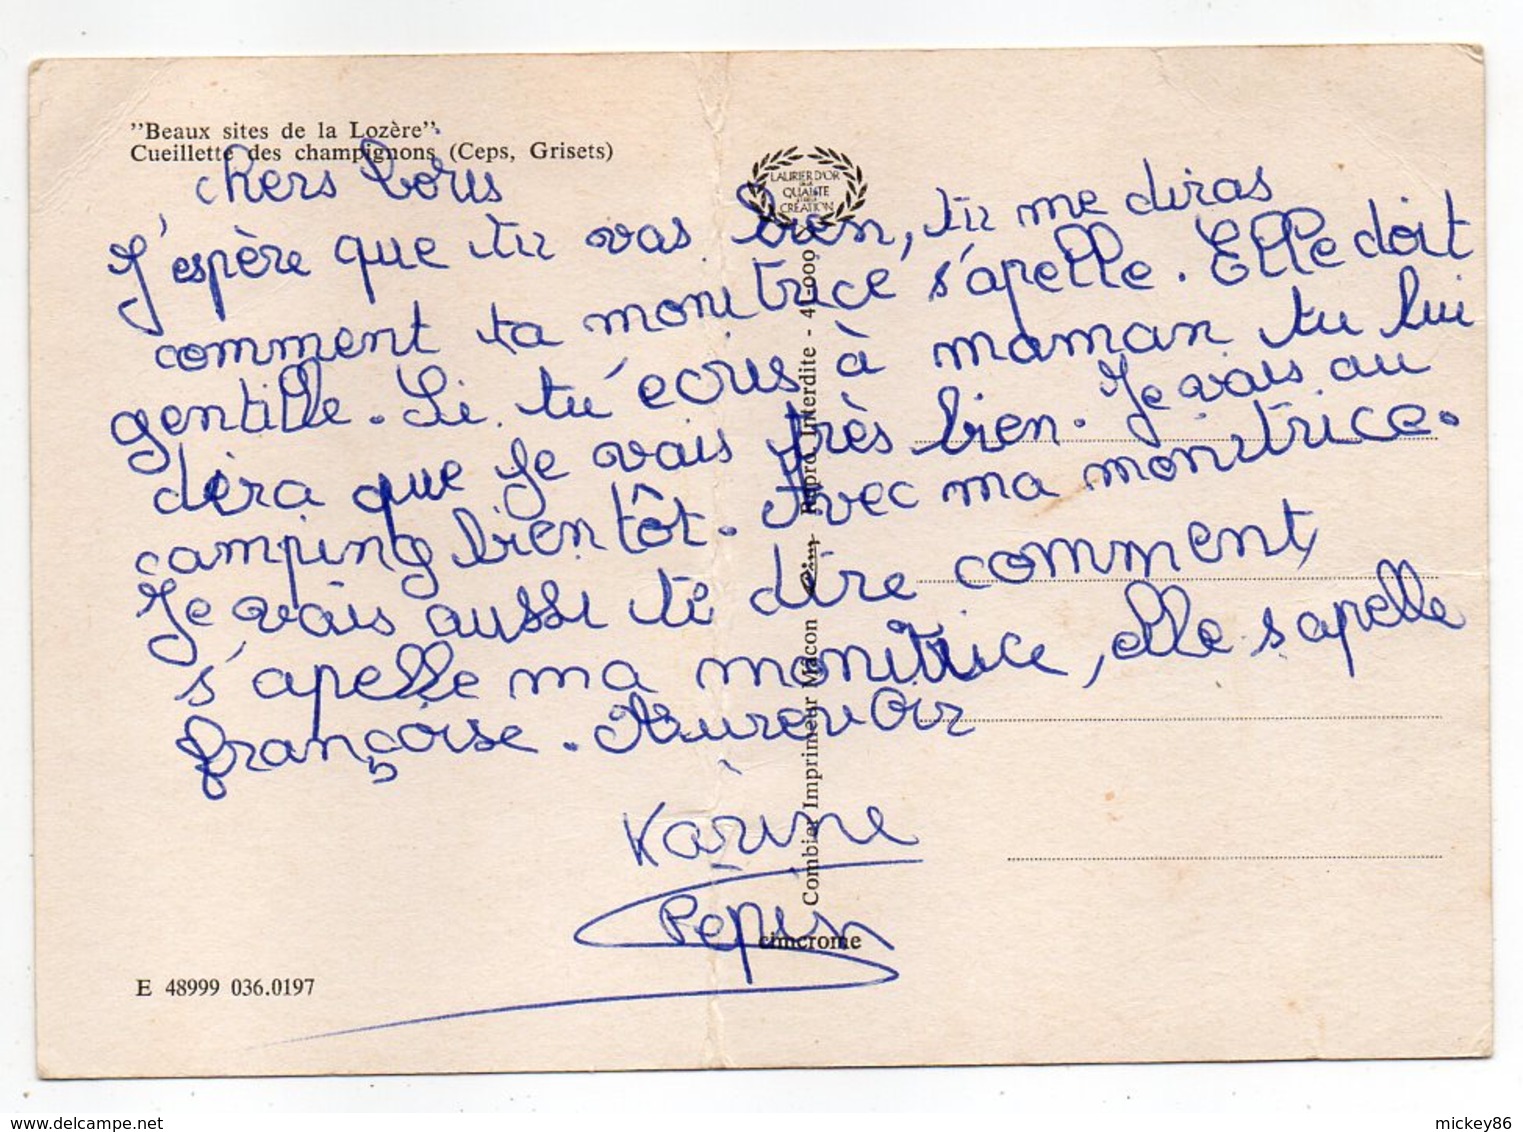 "Beaux sites de la Lozère".
Cueillette des champignons (Ceps, Grisets)
LAURIER D'OR
DE LA
QUALITE
CREATION
chers Boris
J'espère que tu vas bien, tu me diras
comment ta monitrice s'apelle. Elle doit
gentille. Si tu écris à maman tu lui
dira que je vais très bien. Je vais au
camping bientôt. Avec ma monitrice.
Je vais aussi te dire comment
s'apelle ma monitrice, elle s'apelle
françoise. Aurevoir
Karine
Pepin
Combier Imprimeur Macon Cim Repro Interdite - 41-000
cimcrome
E 48999 036.0197
delcampe.net
mickey86